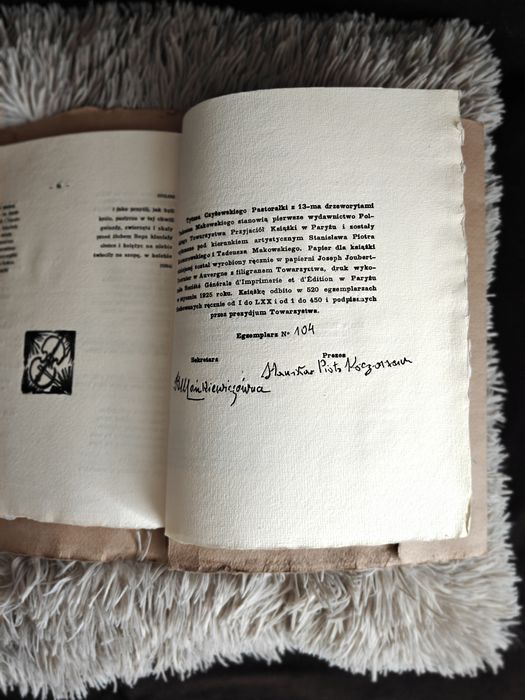 i jako pomnik, jak
króla, pasterze w tej chwili
gwiazdy, zwierzęta i skały
przed żłobem Boga klęczały
słońce i księżyc na niebie
świeciły na szopę, w kolebie
Tytusa Czyżewskiego Pastorałki z 13-ma drzeworytami
Tadeusza Makowskiego stanowią pierwsze wydawnictwo Pol-
skiego Towarzystwa Przyjaciół Książki w Paryżu i zostały
pod kierunkiem artystycznym Stanisława Piotra
i Tadeusza Makowskiego. Papier dla książki
został wyrobiony ręcznie w papierni Joseph Joubert-
w Auvergne z filigranem Towarzystwa, druk wyko-
Société Générale d'Imprimerie et d'Édition w Paryżu
w styczniu 1925 roku. Książkę odbito w 520 egzemplarzach
ręcznie od I do LXX i od 1 do 450 i podpisanych
przez prezydjum Towarzystwa.
Egzemplarz Nº 104
Sekretarz Prezes
Stanisław Piotr Koczorowski